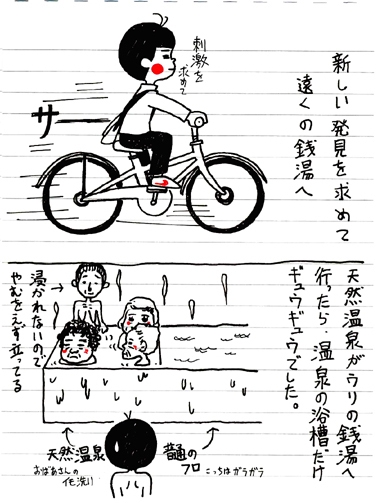 新しい発見を求めて
遠くの銭湯へ
刺激を
求めて
サー
天然温泉がウリの銭湯へ
行ったら、温泉の浴槽だけ
ギュウギュウでした。
浸かれないので
やむをえず立ってる
天然温泉
おばあさんの
イモ洗い
普通の
フロ
こっちはガラガラ